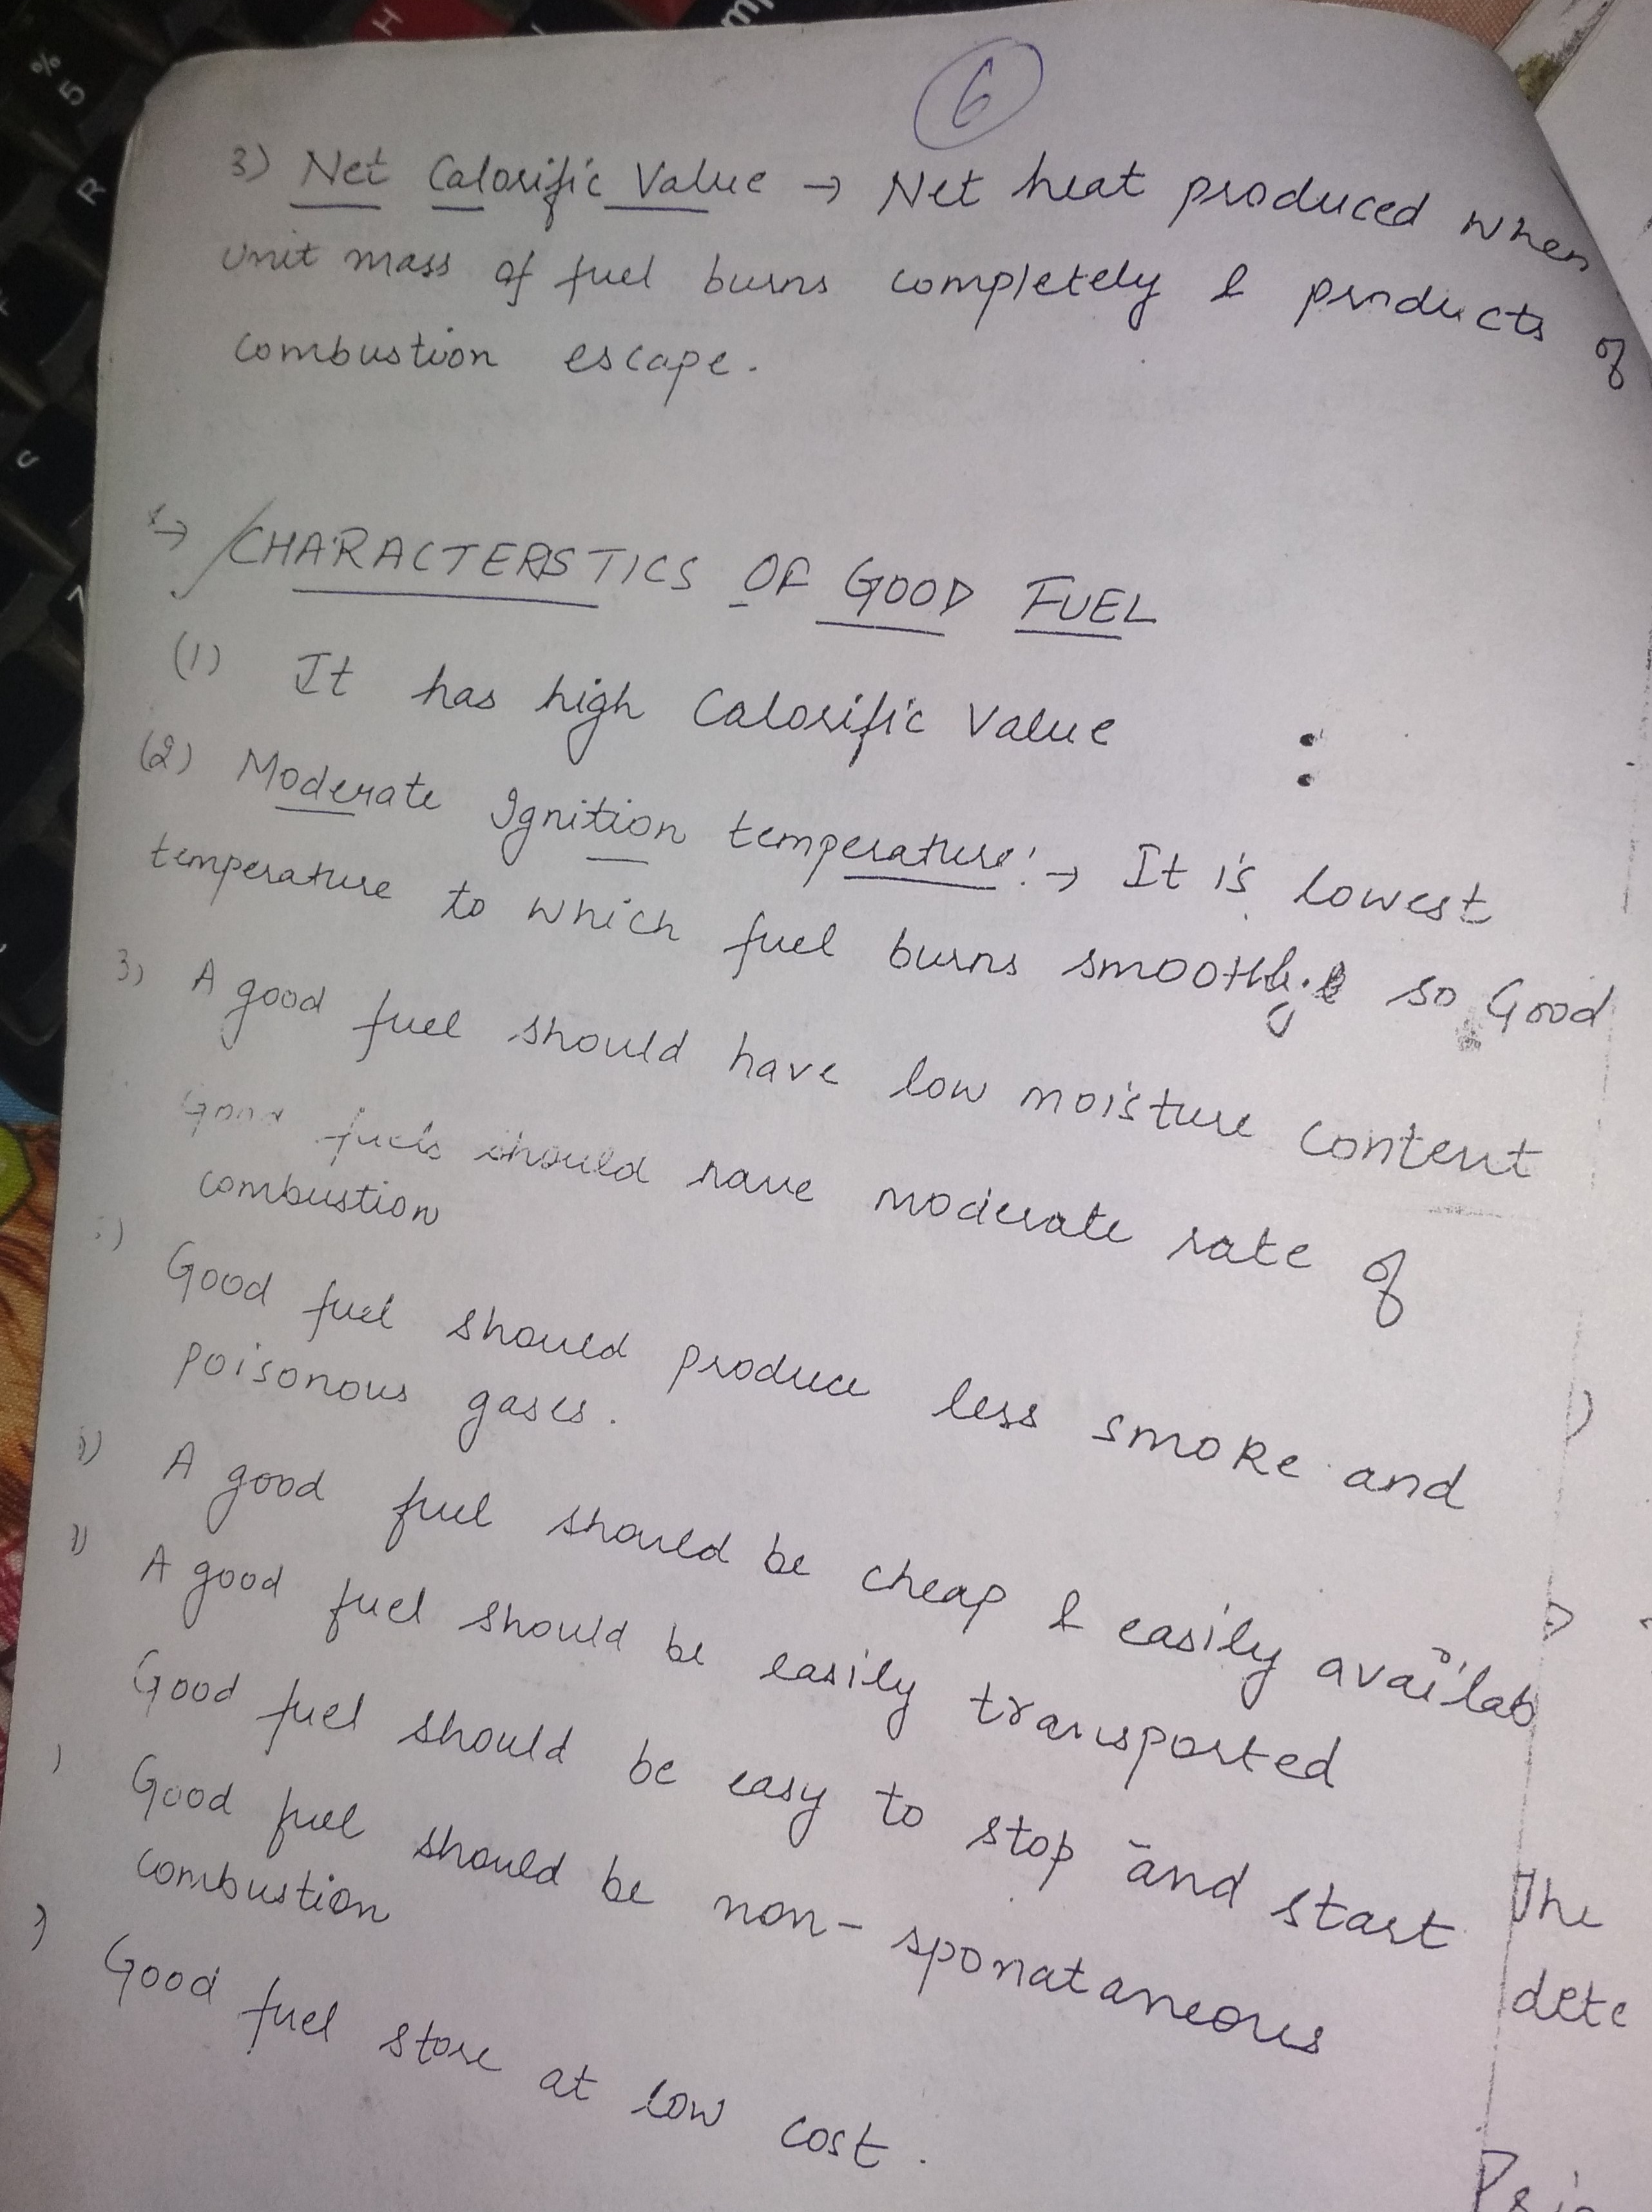 6
3) Net Calorific Value → Net heat produced when
Unit mass of fuel burns completely & products of
combustion escape.
→ CHARACTERSTICS OF GOOD FUEL
(1) It has high Calorific Value :
(2) Moderate Ignition temperature:→ It is lowest
temperature to which fuel burns smoothly. so Good
3) A good fuel should have low moisture content
Good fuels should have moderate rate of
combustion
Good fuel should produce less smoke and
poisonous gases.
A good fuel should be cheap & easily availab
A good fuel should be easily transported
Good fuel should be easy to stop and start
) Good fuel should be non-sponataneous
combustion
Good fuel store at low cost.
The
dete
%
5
R
H